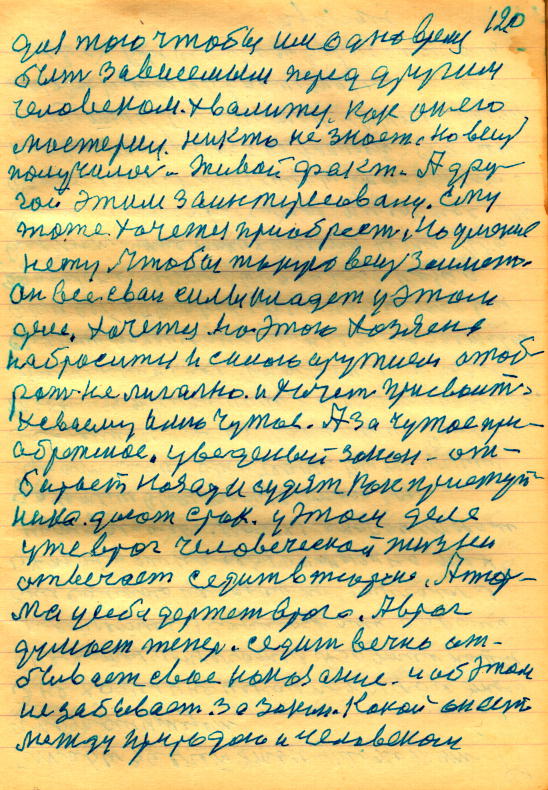 120
для того чтобы им одно врем
быть зависемым перед другим
человеком. хвалиту. как он его
мастерил. никто не знает. но вещ
получилось. Живой факт. А дру-
гой этим заинтересован. ему
тоже. хочется приобрест. Но умение
нету. Чтобы такую вещ заимет.
он все. свои силы кладет у этом
деле. хочется на этого хозяена
набросится и силою оружием отоб-
рат. не лигално. и хочет присвоит.
к своему чужое. А за чужое при-
обретение. уведеный закон. от-
бирает назад и судят как приступ-
ника. дают срок. у этом деле
уже враг человеческой жизни
отвечает седит в тюрме. А тюр-
ма у себа держет врага. А враг
думает тепер. седит вечно от-
бывает свое наказание. и об этом
не забывает. за закон. Какой он ест
между природою и человеком